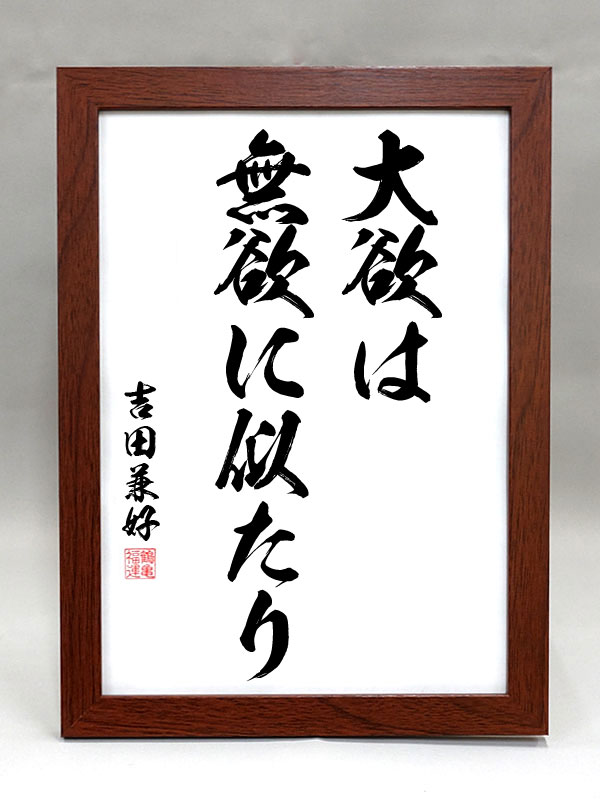 大欲は
無欲に似たり
吉田兼好
鶴亀
福運